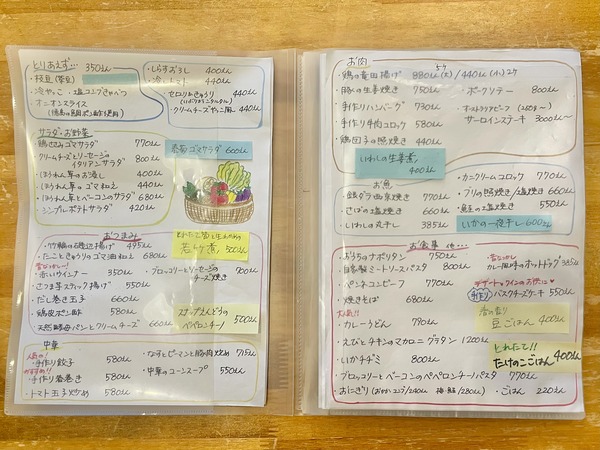 とりあえず… 350えん
・枝豆(茶豆)
・冷やっこ ・塩コンブきゃべつ
・オニオンスライス
・しらすおろし 400えん
・冷しトマト 440えん
・セロリときゅうり 440えん
・クリームチーズやっこ風 440えん
サラダ・お野菜
・鶏ささみゴマサラダ 770えん
・クリームチーズとソーセージの
イタリアンサラダ 800えん
・ほうれん草のお浸し 400えん
・ほうれん草のゴマ和え 440えん
・ほうれん草とベーコンのサラダ 680えん
・シンプルポテトサラダ 420えん
春菊ゴマサラダ 600えん
おつまみ
・竹輪の磯辺揚げ 495えん
・たこときゅうりのゴマ油和え 680えん
・赤いウインナー 350えん
・さつま芋スティック揚げ 550えん
・だし巻き玉子 660えん
・鶏皮ポン酢 440えん
・天然酵母パンとクリームチーズ 660えん
・ブロッコリーとソーセージの
チーズ焼き 700えん
若竹煮 500えん
スナップえんどうの
ペペロンチーノ 500えん
中華
人気の!
・手作り餃子 580えん
おすすめ!!
・手作り春巻き 580えん
・トマト玉子炒め 580えん
・なすとピーマンと豚肉炒め 715えん
・中華のコーンスープ 550えん
お肉
・鶏の竜田揚げ 880えん(大) 5ケ/440えん(小)2ケ
・豚の生姜焼き 750えん
・手作りハンバーグ 730えん
・手作り牛肉コロッケ 580えん
・鶏団子の照焼き 440えん
・ポークソテー 800えん
・サーロインステーキ 3000えん〜
いわしの生姜煮
400えん
お魚
・銀ダラ西京焼き 770えん
・さばの塩焼き 660えん
・いわしの丸干し 385えん
・カニクリームコロッケ 770えん
・ブリの照焼き/塩焼き 660えん
・鮭の塩焼き 550えん
いかの一夜干し 600えん
お食事 他…
・おうちのナポリタン 750えん
・自家製ミートソースパスタ 800えん
・ペンネコンビーフ 770えん
・焼きそば 680えん
人気!!
・カレーうどん 790えん
・えびとチキンのマカロニグラタン 1200えん
・いかチヂミ 800えん
・ブロッコリーとベーコンのペペロンチーノパスタ 770えん
・おにぎり(おかかコンブ/240えん 梅・鮭/280えん) ・ごはん 220えん
・カレー風味のホットドッグ 385えん
デザート・ワインのお供に♡
手作り バスクチーズケーキ 550えん
春の香り
豆ごはん 400えん
とれたて!!
たけのこごはん 400えん